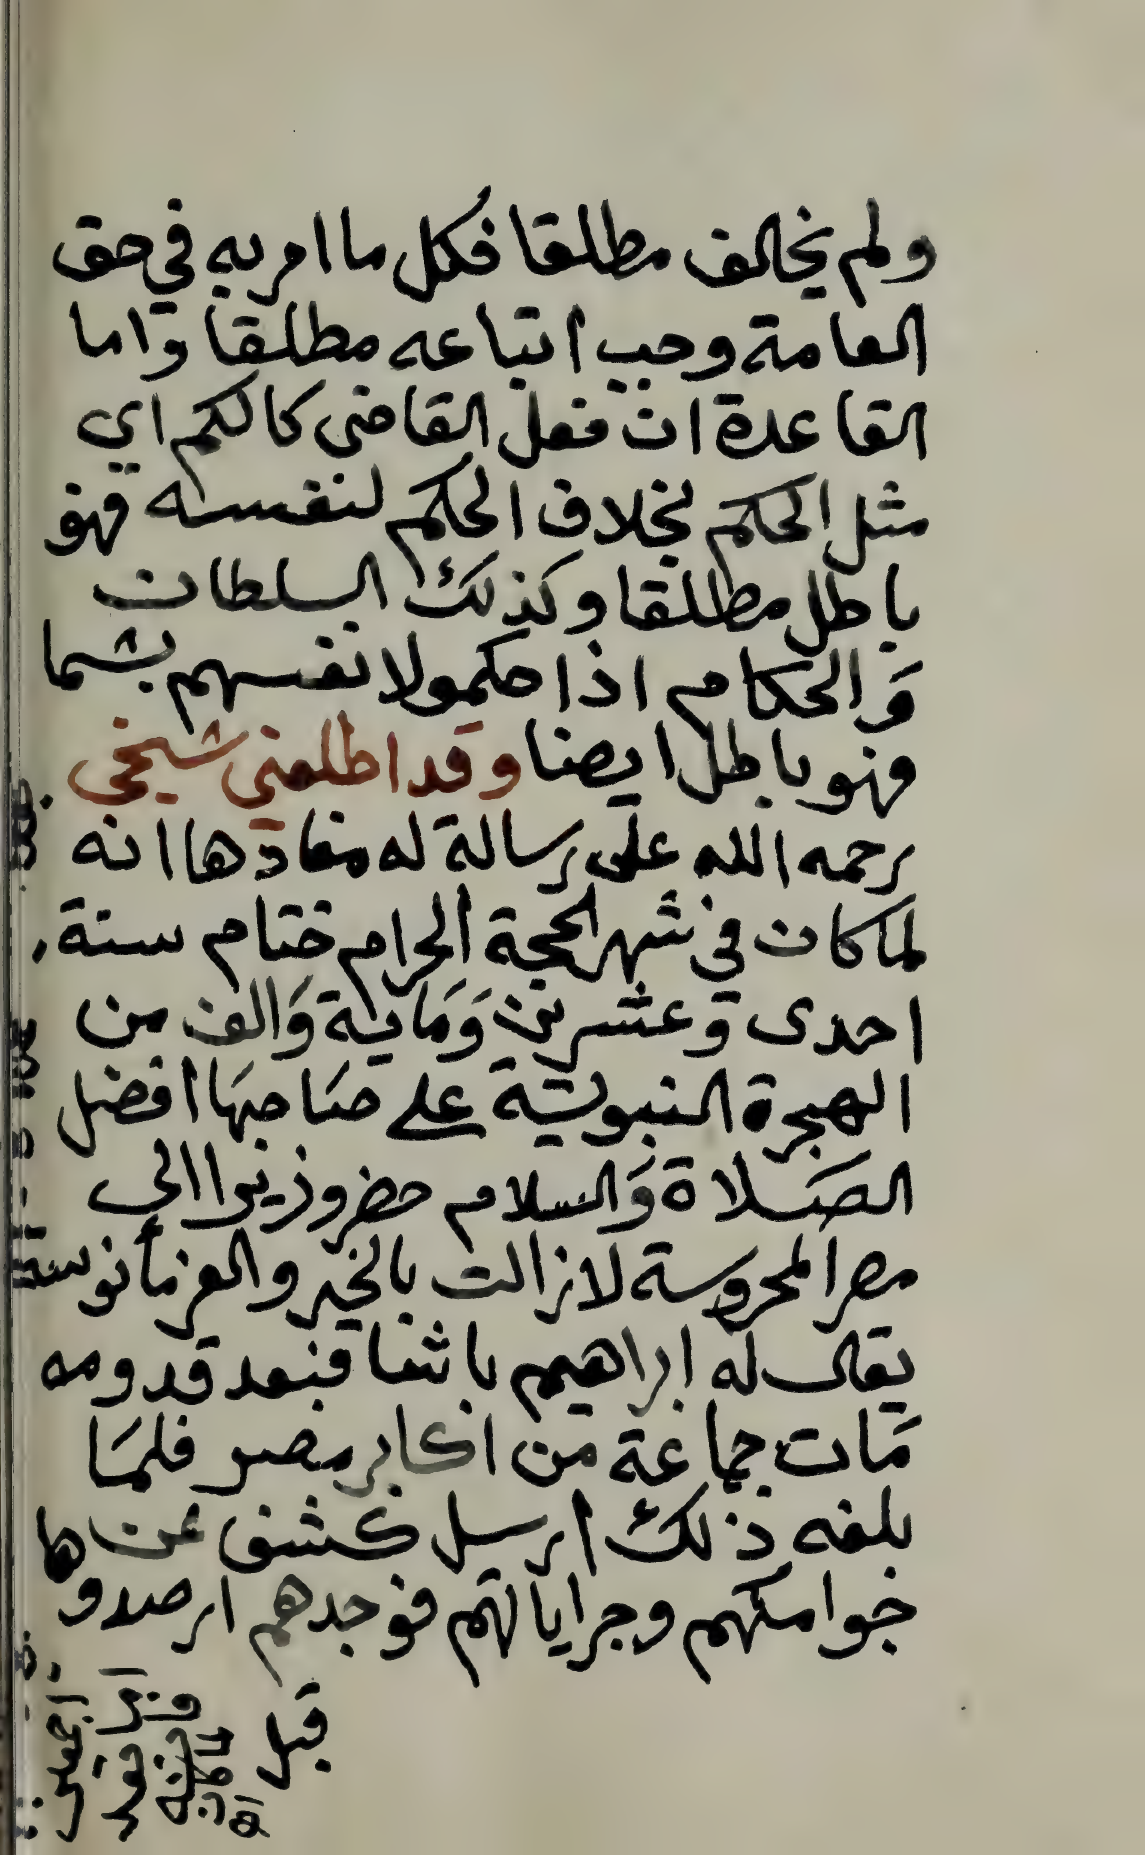 ولم يخالف مطلقا فكل ما امر به في حق
العامة وجب اتباعه مطلقا واما
القاعدة ان فعل القاضي كالحكم اي
مثل الحكم بخلاف الحكم لنفسه فهو
باطل مطلقا وكذلك السلطان
والحكام اذا حكمو لانفسهم بشما
فهو باطل ايضا وقد اطلعني شيخي
رحمه الله على رسالة له مفادها انه
لما كان في شهر الحجة الحرام ختام سنة
احدى وعشرين وماية والف من
الهجرة النبوية على صاحبها افضل
الصلاة والسلام حضر وزيرا الى
مصر المحروسة لا زالت بالخير والعز مأنوسة
يقال له ابراهيم باشا فبعد قدومه
مات جماعة من اكابر مصر فلما
بلغه ذلك ارسل كشف عن
جوامكهم وجراياتهم فوجدهم ارصدوها
قبل